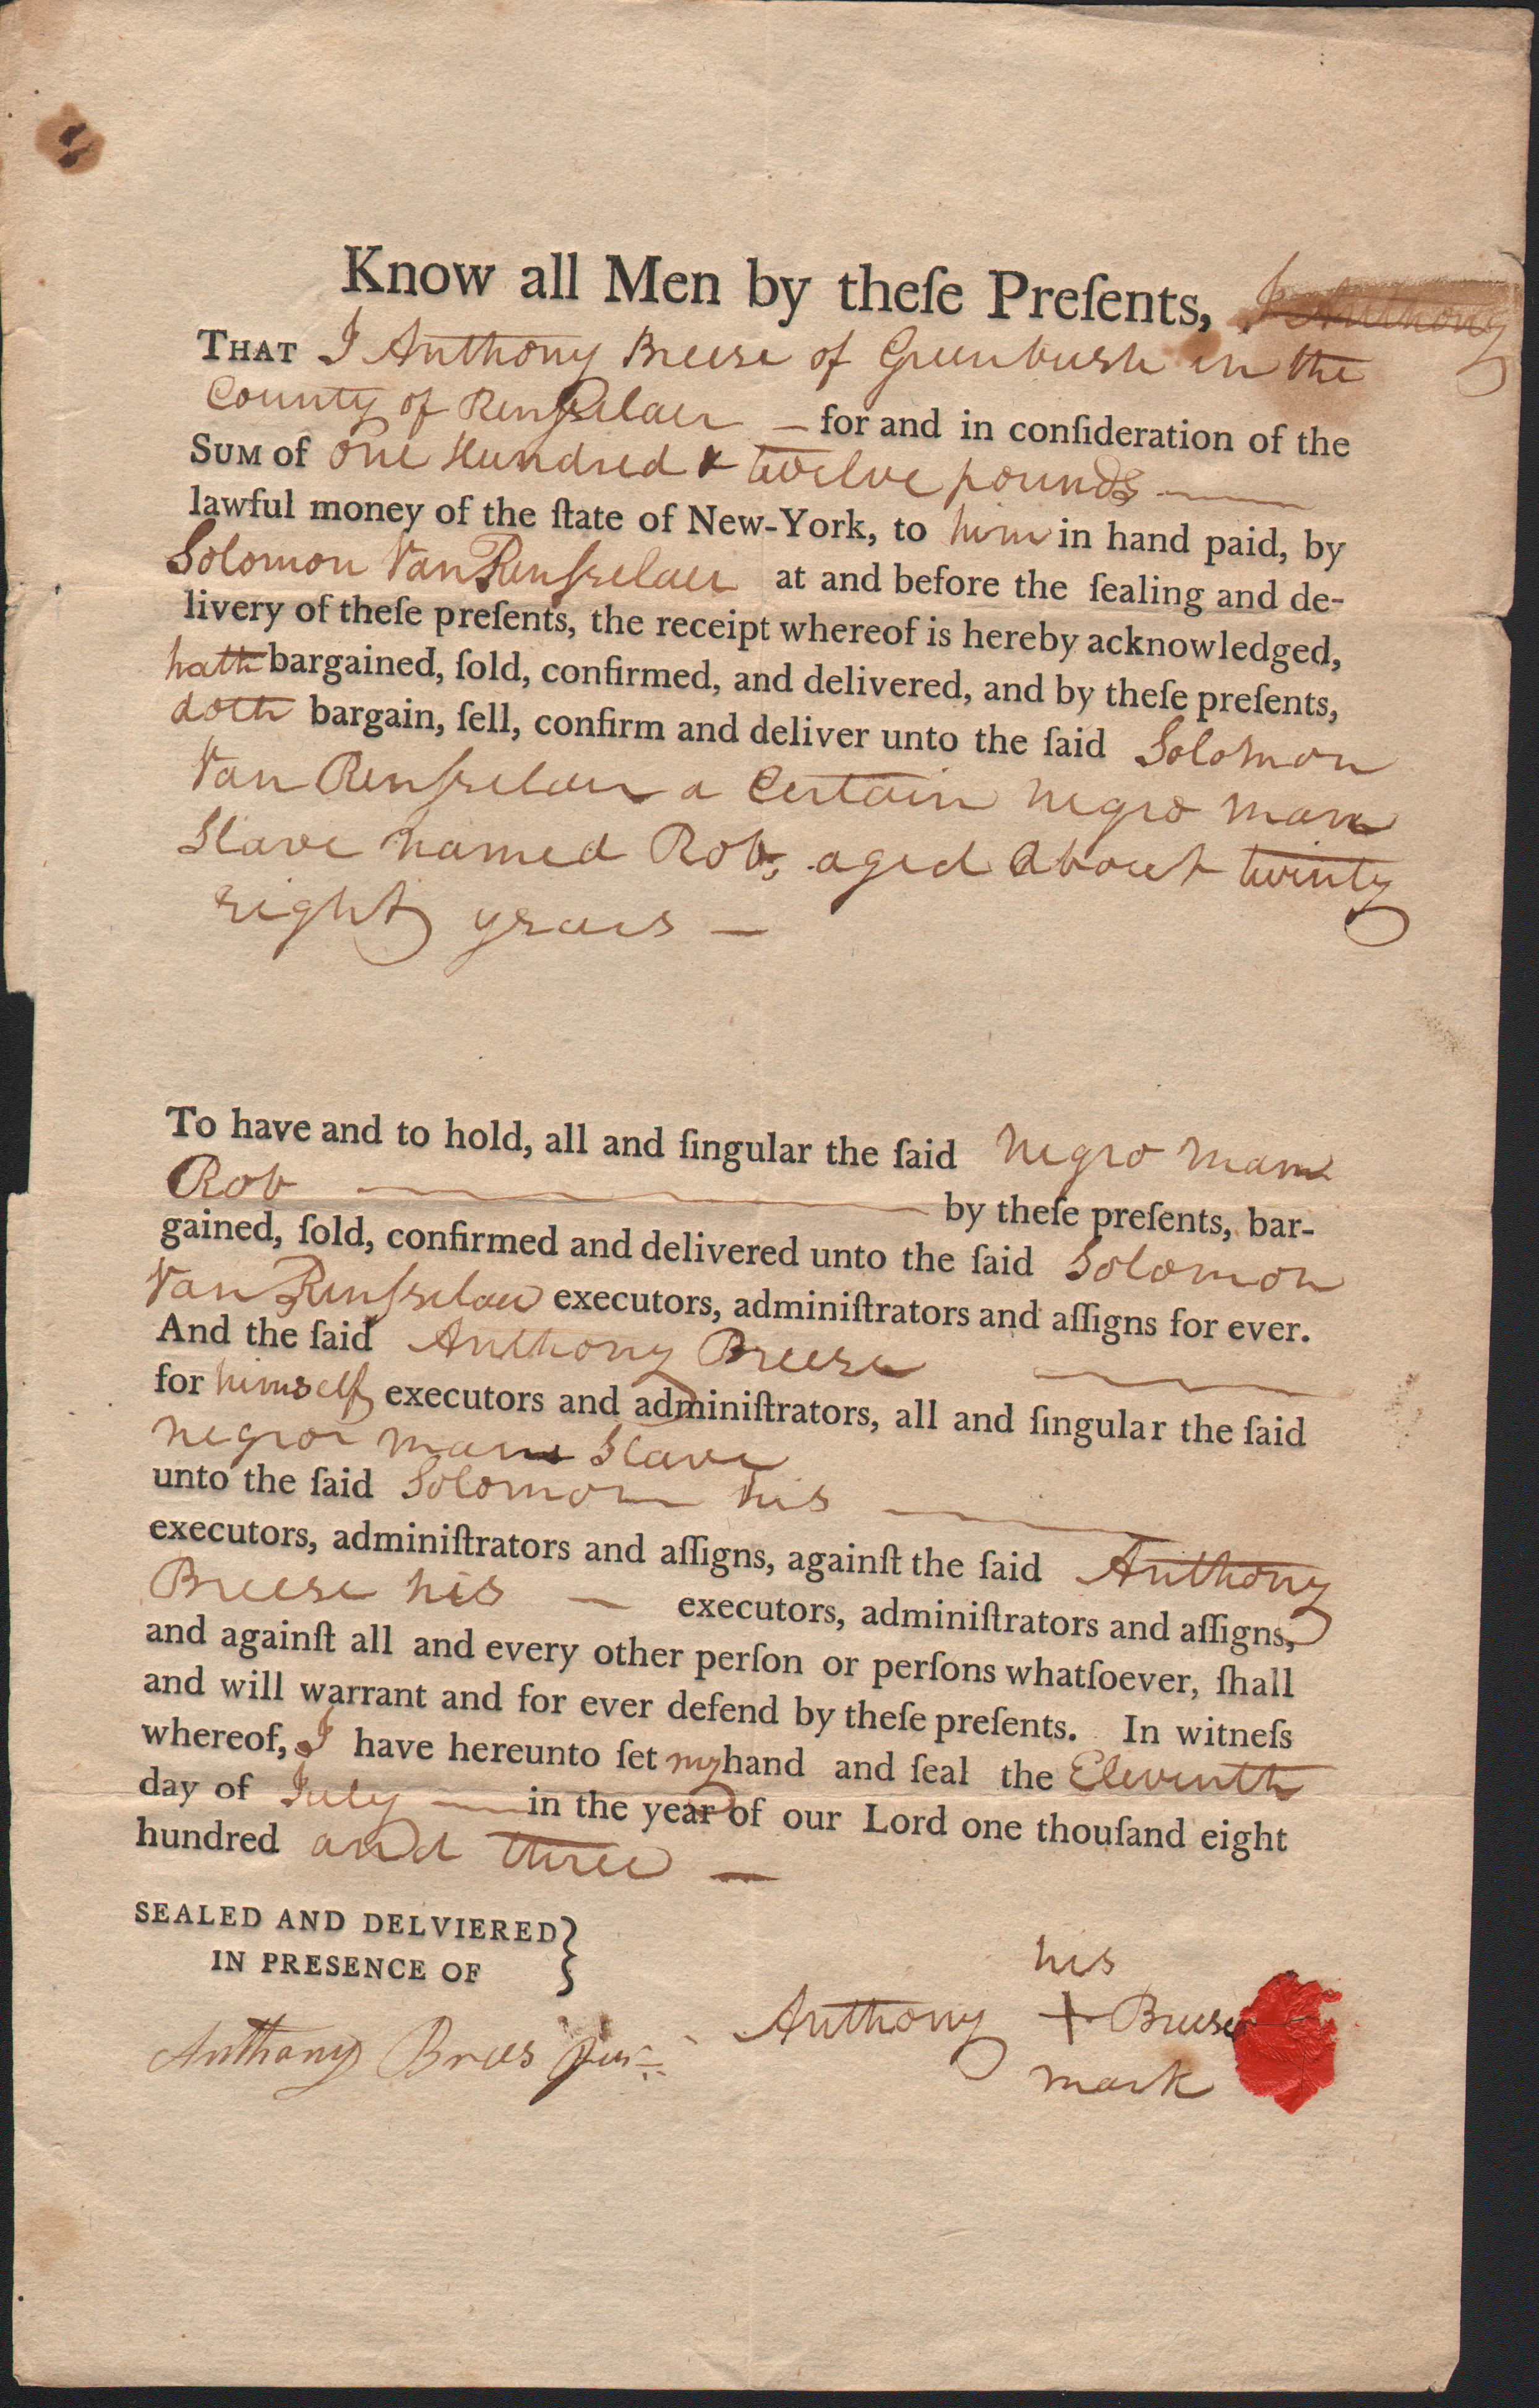 Know all Men by theſe Preſents, I Anthony
THAT I Anthony Breese of Greenbush in the
County of Renſselaer — for and in conſideration of the
SUM of One Hundred & twelve pounds —
lawful money of the ſtate of New-York, to him in hand paid, by
Solomon Van Renſselaer at and before the ſealing and de-
livery of theſe preſents, the receipt whereof is hereby acknowledged,
hath bargained, ſold, confirmed, and delivered, and by theſe preſents,
doth bargain, ſell, confirm and deliver unto the ſaid Solomon
Van Renſselaer a Certain negro man
Slave named Rob, aged about twenty
eight years —
To have and to hold, all and ſingular the ſaid negro man
Rob — by theſe preſents, bar-
gained, ſold, confirmed and delivered unto the ſaid Solomon
Van Renſselaer executors, adminiſtrators and aſſigns for ever.
And the ſaid Anthony Breese —
for himself executors and adminiſtrators, all and ſingular the ſaid
negro man Slave
unto the ſaid Solomon his —
executors, adminiſtrators and aſſigns, againſt the ſaid Anthony
Breese his — executors, adminiſtrators and aſſigns,
and againſt all and every other perſon or perſons whatſoever, ſhall
and will warrant and for ever defend by theſe preſents. In witneſs
whereof, I have hereunto ſet my hand and ſeal the Eleventh
day of July — in the year of our Lord one thouſand eight
hundred and three —
SEALED AND DELVIERED
IN PRESENCE OF
his
Anthony + Breese
mark
Anthony Brees Jun